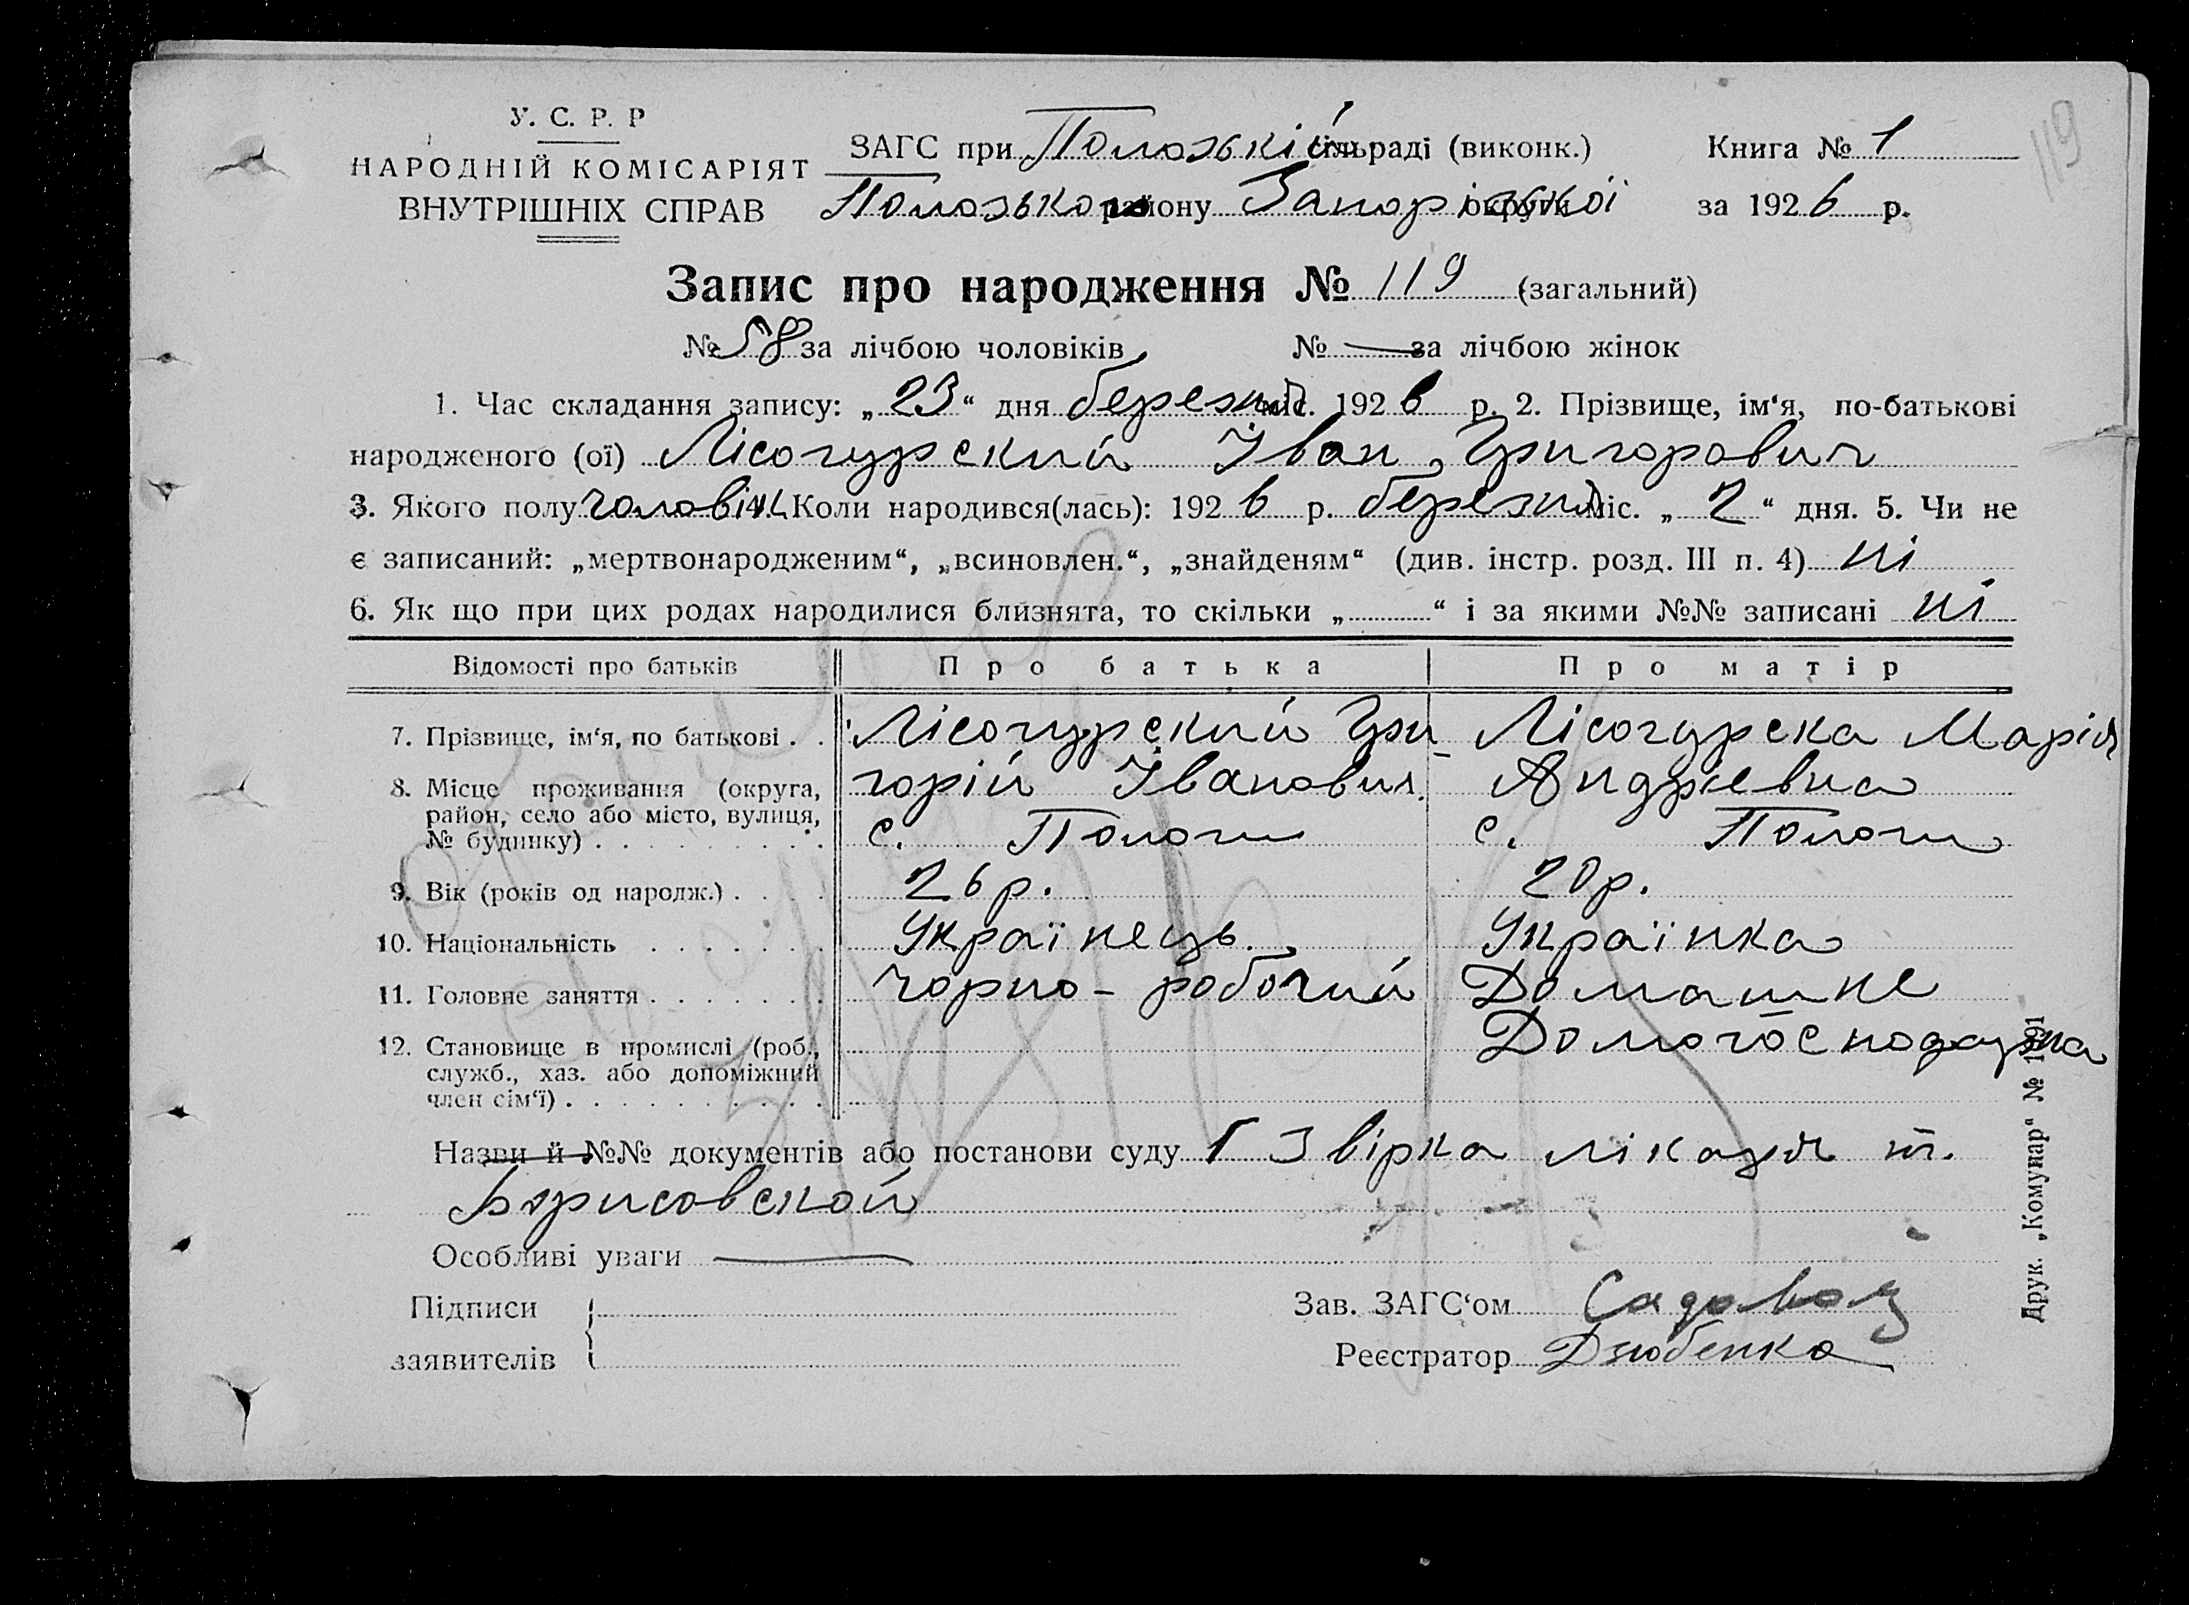 У. С. Р. Р
НАРОДНІЙ КОМІСАРІЯТ
ВНУТРІШНІХ СПРАВ
ЗАГС при Полозькій сільраді (виконк.)
Полозького району Запорізької округи
Книга № 1
за 1926 р.
119
Запис про народження № 119 (загальний)
№ 58 за лічбою чоловіків № — за лічбою жінок
1. Час складання запису: „23“ дня березня міс. 1926 р. 2. Прізвище, ім‘я, по-батькові
народженого (ої) Лісогурский Іван Григорович
3. Якого полу чоловіч. 4. Коли народився(лась): 1926 р. березня міс. „2“ дня. 5. Чи не
є записаний: „мертвонародженим“, „всиновлен.“, „знайденям“ (див. інстр. розд. III п. 4) ні
6. Як що при цих родах народилися близнята, то скільки „ “ і за якими №№ записані ні
Відомості про батьків Про батька Про матір
7. Прізвище, ім‘я, по батькові . . Лісогурский Гри- Лісогурска Марія
8. Місце проживання (округа, горій Іванович. Андріевна
район, село або місто, вулиця,
№ будинку) . . . . . . . . . с. Пологи с. Пологи
9. Вік (років од народж.) . . . . 26 р. 20 р.
10. Національність . . . . . . . Українець. Українка
11. Головне заняття . . . . . . . чорно-робочий Домашне
12. Становище в промислі (роб., Домогосподарка
служб., хаз. або допоміжний
член сім‘ї) . . . . . . . . . .
Назви й №№ документів або постанови суду Звірка лікаря т.
Борисовской
Особливі уваги —
Підписи
заявителів
Зав. ЗАГС‘ом
Реєстратор Дзюбенко
Друк. „Комунар“ № 1691